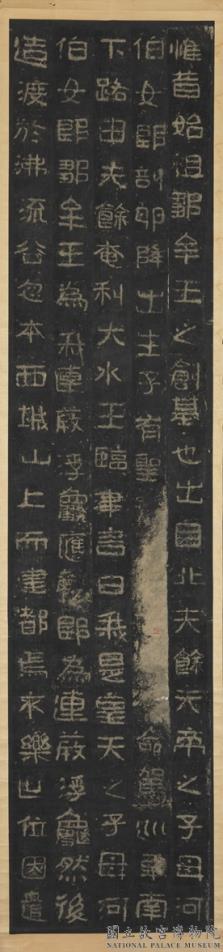 惟昔始祖鄒牟王之創基也出自北夫餘天帝之子母河
伯女郎剖卵降出生子有聖命駕巡南
下路由夫餘奄利大水王臨津言曰我是皇天之子母河
伯女郎鄒牟王為我連葭浮龜應聲即為連葭浮龜然後
造渡於沸流谷忽本西城山上而建都焉永樂世位因遣
國立故宮博物院
NATIONAL PALACE MUSEUM